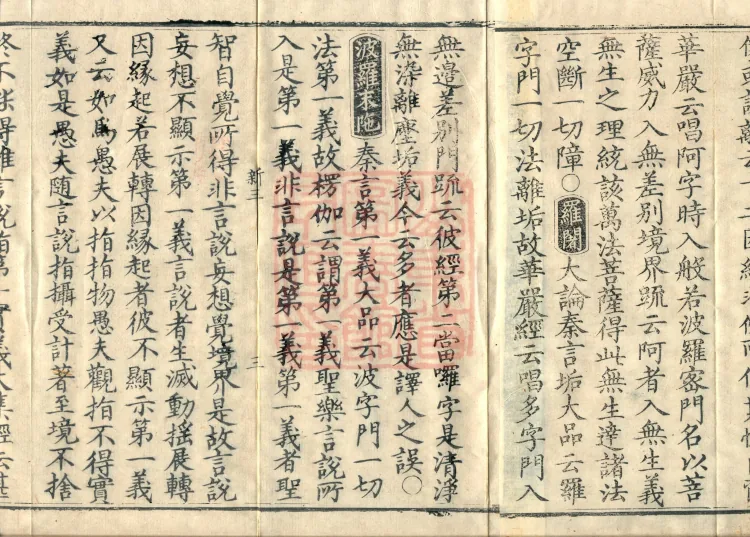 華嚴云唱阿字時入般若波羅蜜門名以菩
薩威力入無差別境界䟽云阿者入無生義
無生之理統該萬法菩薩得此無生達諸法
空斷一切障○羅闍大論秦言垢大品云羅
字門一切法離垢故華嚴經云唱多字門入
無邊差別門䟽云彼經第二當囉字是清淨
無染離塵垢義今云多者應是譯人之誤○
波羅末陁秦言第一義大品云波字門一切
法第一義故楞伽云謂第一義聖樂言說所
入是第一義非言說是第一義第一義者聖
新三 三
智自覺所得非言說妄想覺境界是故言說
妄想不顯示第一義言說者生滅動搖展轉
因緣起若展轉因緣起者彼不顯示第一義
又云如爲愚夫以指指物愚夫觀指不得實
義如是愚夫隨言說指攝受計著至境不捨
終不能得離言說指第一實義大集經云甚